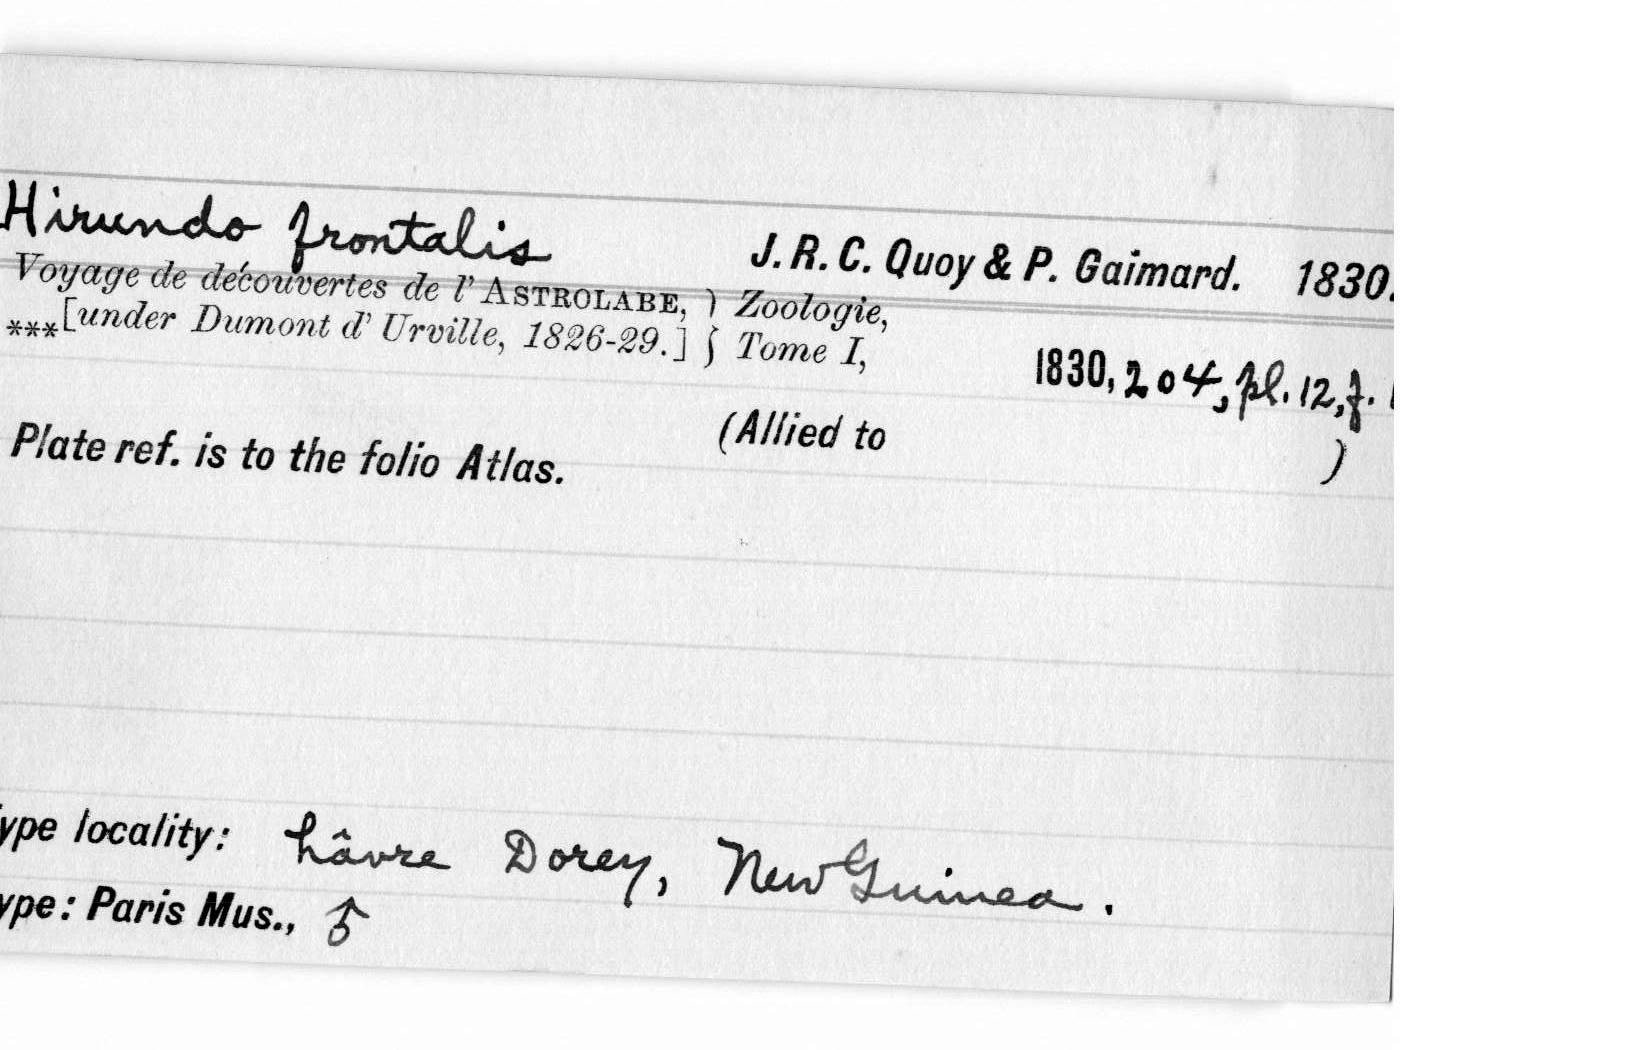 Hirundo frontalis J. R. C. Quoy & P. Gaimard. 1830.
Voyage de découvertes de l'ASTROLABE, } Zoologie,
***[under Dumont d' Urville, 1826-29.] } Tome I,
1830, 204, pl. 12, f. 1
(Allied to )
Plate ref. is to the folio Atlas.
ype locality: hâvre Dorey, New Guinea.
ype: Paris Mus., ♂